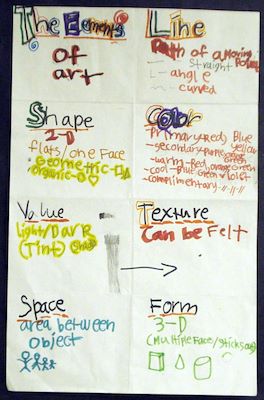 The Elements
of
art
Line
Path of a moving Point
straight
angle
curved
Shape
2-D
flats/one Face
Geometric-
organic-
Color
-Primary-Red Blue yellow
-secondary-Purple, Green
-warm-Red, orange
-cool-Blue Green violet
-complimentary-
Value
Light/Dark
(Tint)
Texture
Can be Felt
Space
area between
object
Form
3-D
(Multiple Face/sticks out)